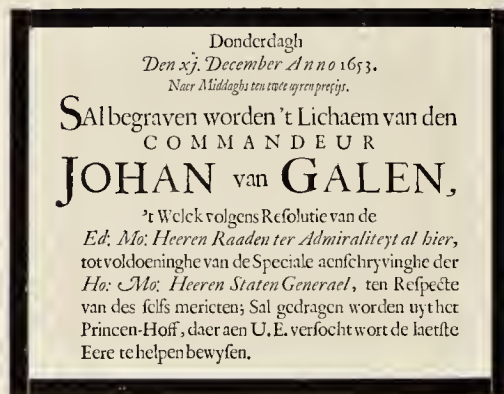 Donderdagh
Den xj. December Anno 1653.
Naer Middaghs ten twee uyren precijs.
SAl begraven worden 't Lichaem van den
COMMANDEUR
JOHAN van GALEN,
't Welck volgens Resolutie van de
Ed: Mo: Heeren Raaden ter Admiraliteyt al hier,
tot voldoeninghe van de Speciale aenschryvinghe der
Ho: Mo: Heeren Staten Generael, ten Respecte
van des selfs meriten; Sal gedragen worden uyt het
Princen-Hoff, daer aen U.E. versocht wort de laetste
Eere te helpen bewysen.